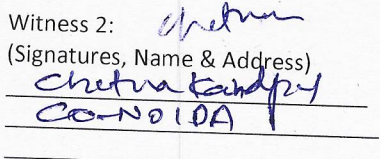 Witness 2: Chetna
(Signatures, Name & Address)
Chetna Kandpal
CO-NOIDA